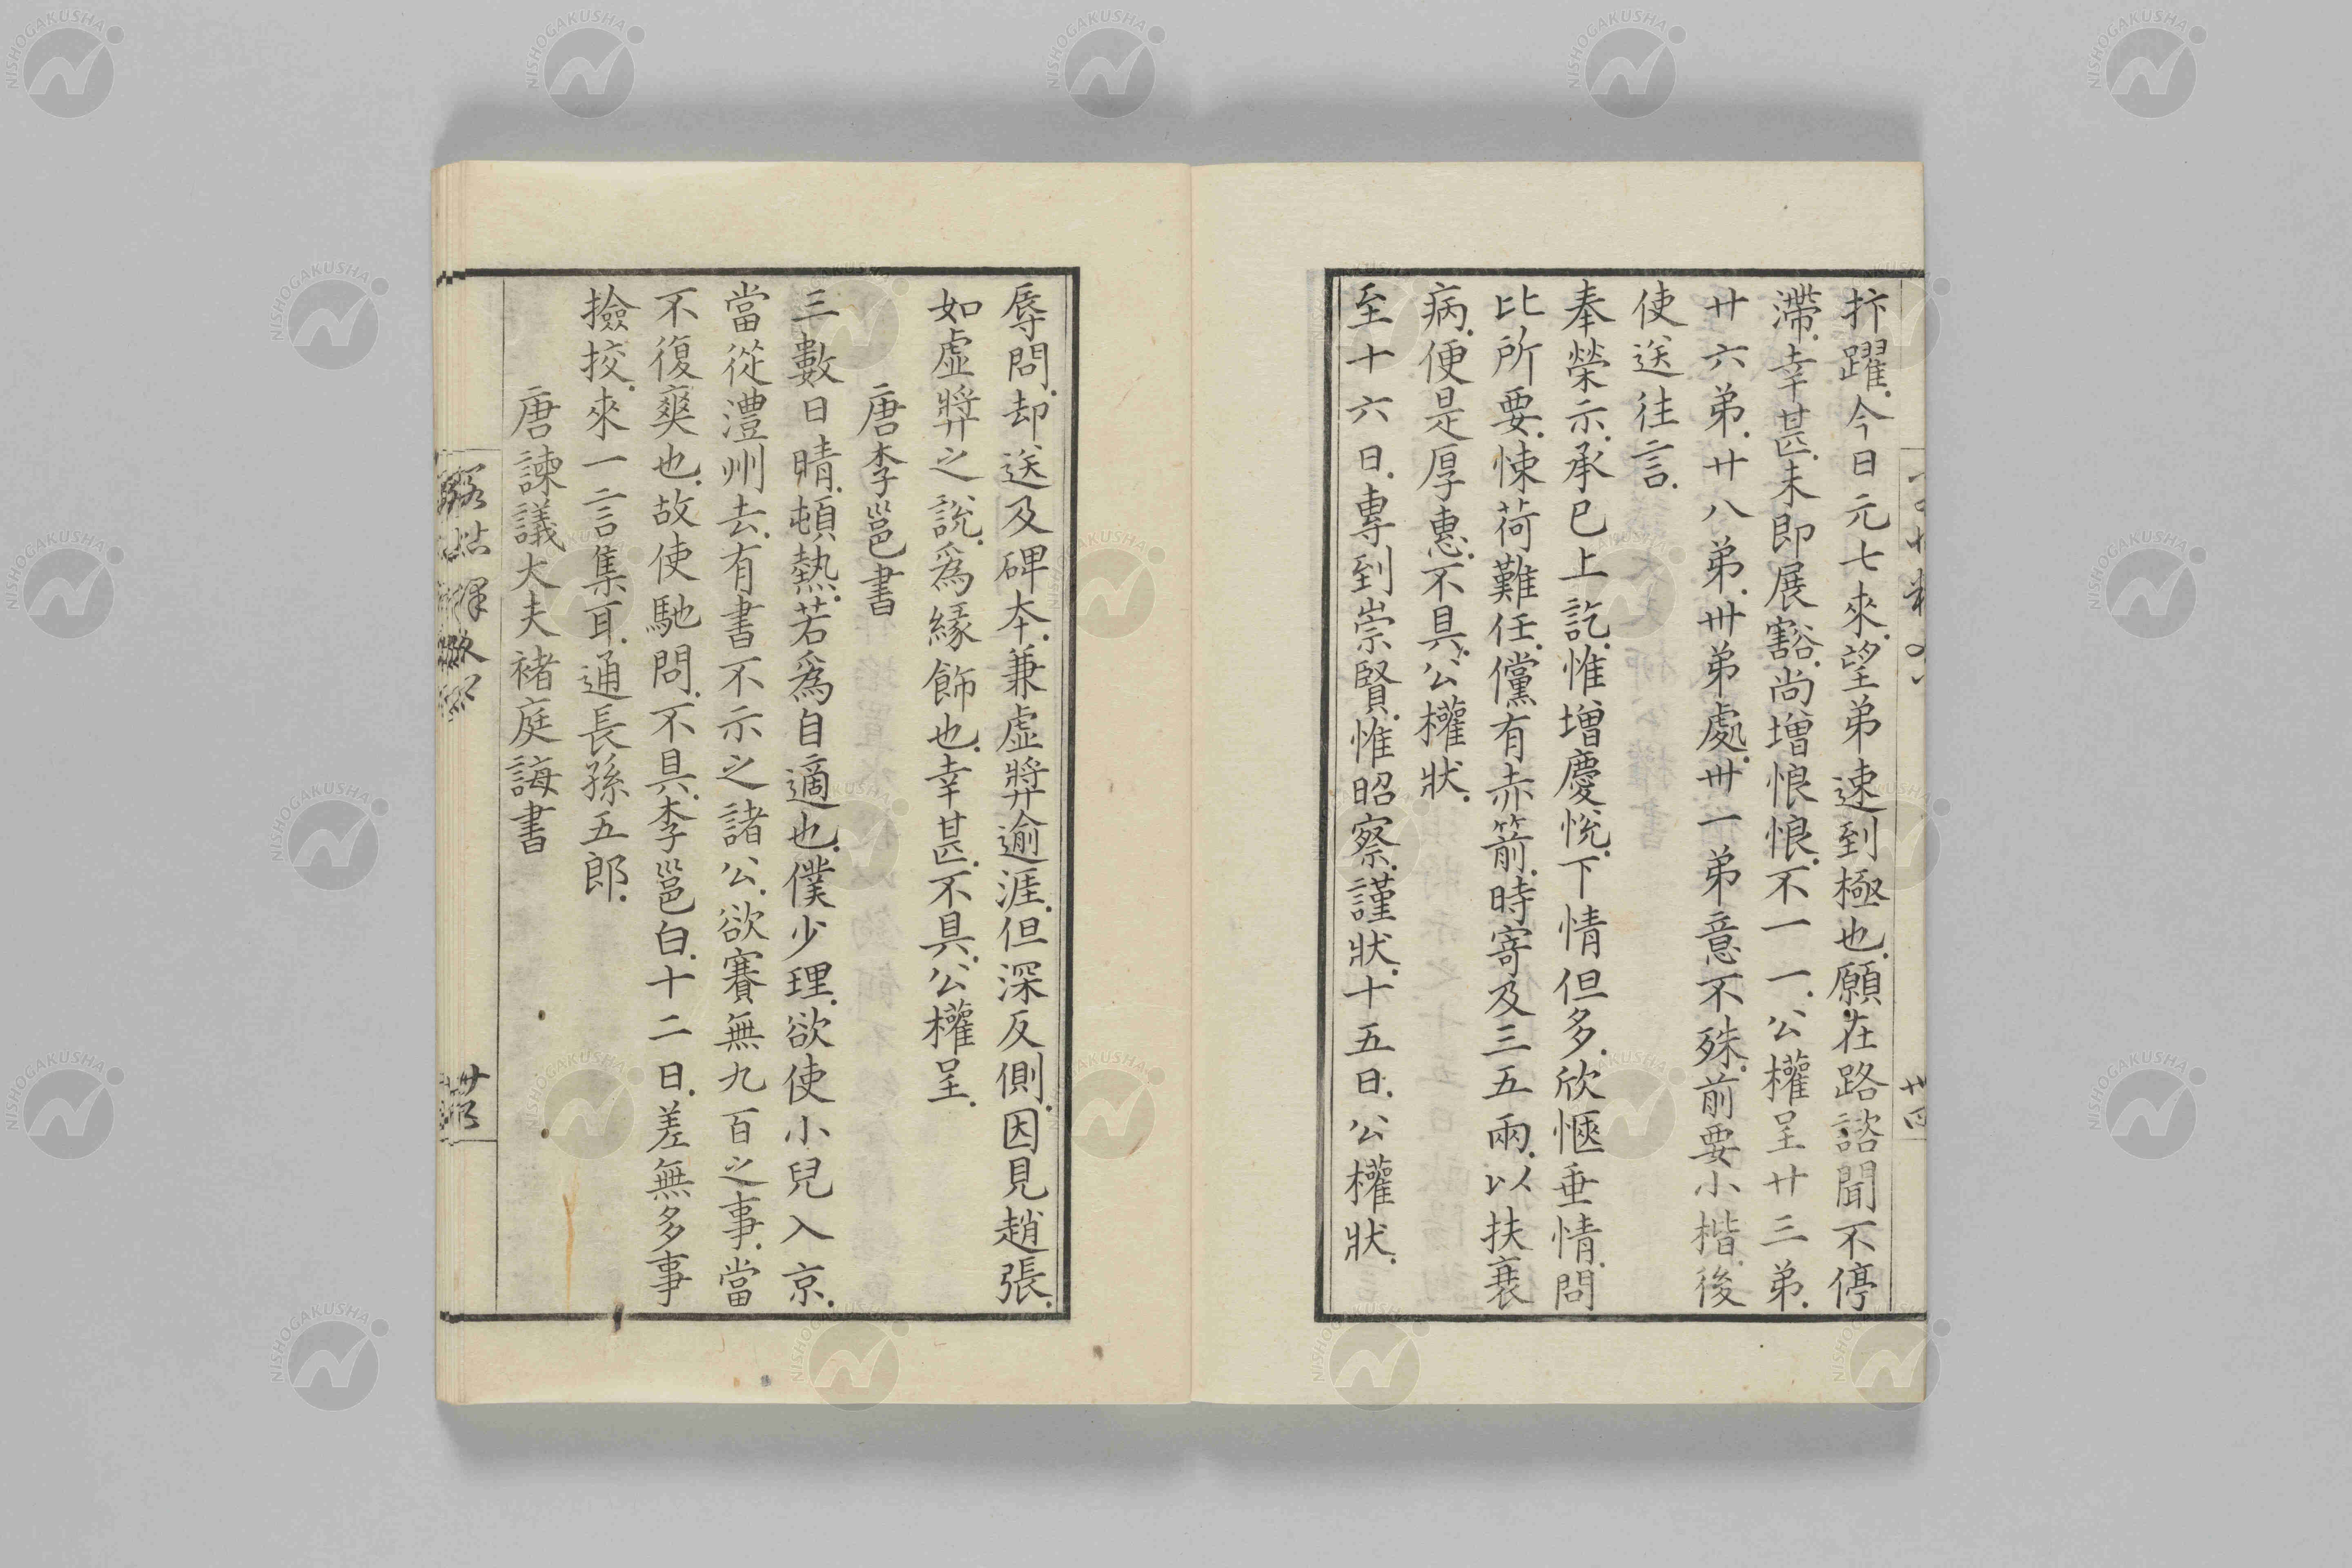 抃躍.今日元七來.望弟速到極也.願在路諮聞不停
滯.幸甚.未即展豁.尚增悢悢.不一一.公權呈廿三弟.
廿六弟.廿八弟.卅弟處.卅一弟意不殊.前要小楷.後
使送往言.
奉榮示.承已上訖.惟增慶悅.下情但多.欣愜垂情.問
比所要.悚荷難任.儻有赤箭.時寄及三五兩.以扶衰
病.便是厚惠.不具.公權狀.
至十六日.專到崇賢.惟昭察.謹狀.十五日.公權狀.
辱問.却送及碑本.兼虛弉逾涯.但深反側.因見趙張.
如虛弉之說.爲緣飾也.幸甚.不具.公權呈.
唐李邕書
三數日晴.頓熱.若爲自適也.僕少理.欲使小兒入京.
當從澧州去.有書不示之諸公.欲賽無九百之事.當
不復爽也.故使馳問.不具.李邕白.十二日.差無多事
撿挍.來一言集耳.通長孫五郎.
唐諫議大夫褚庭誨書
NISHOGAKUSHA